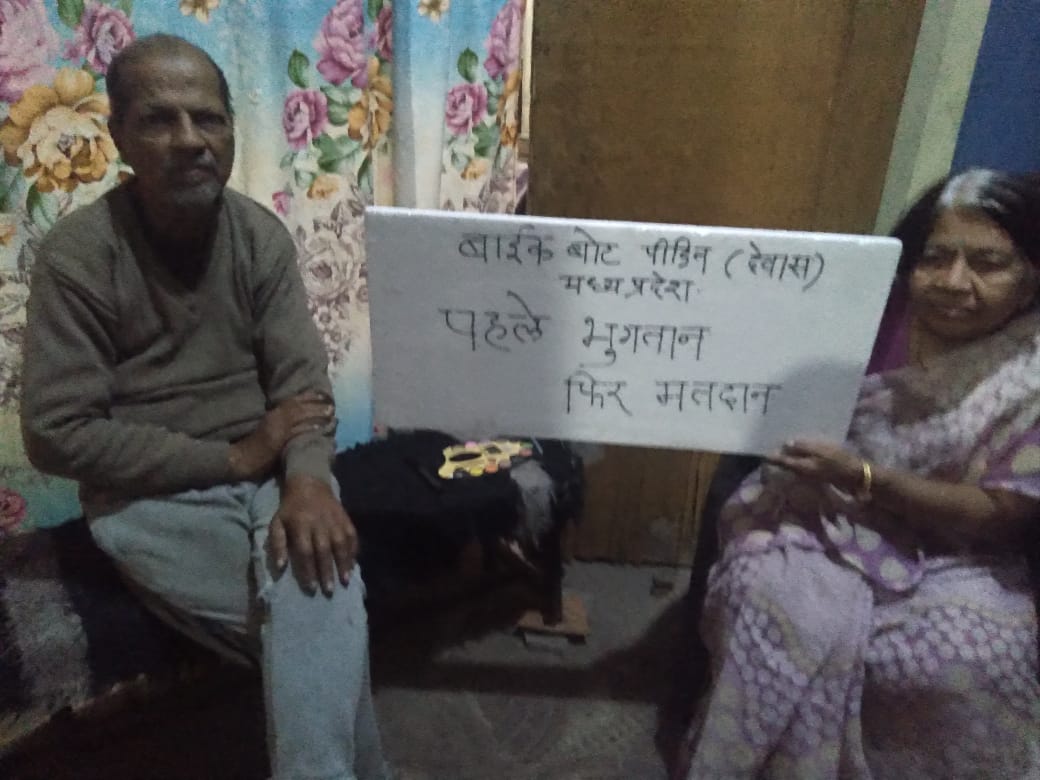 बाईक बोट पीडित (देवास)
मध्य प्रदेश
पहले भुगतान
फिर मतदान